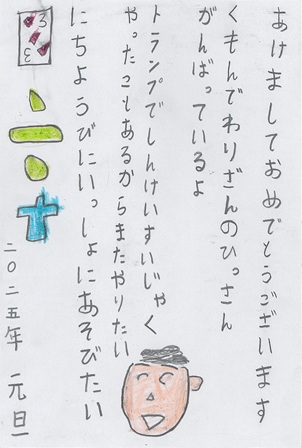 あけましておめでとうございます
くもんでわりざんのひっさん
がんばっているよ
トランプでしんけいすいじゃく
やったこもあるからまたやりたい
にちようびにいっしょにあそびたい
3
3
二〇二五年 元旦